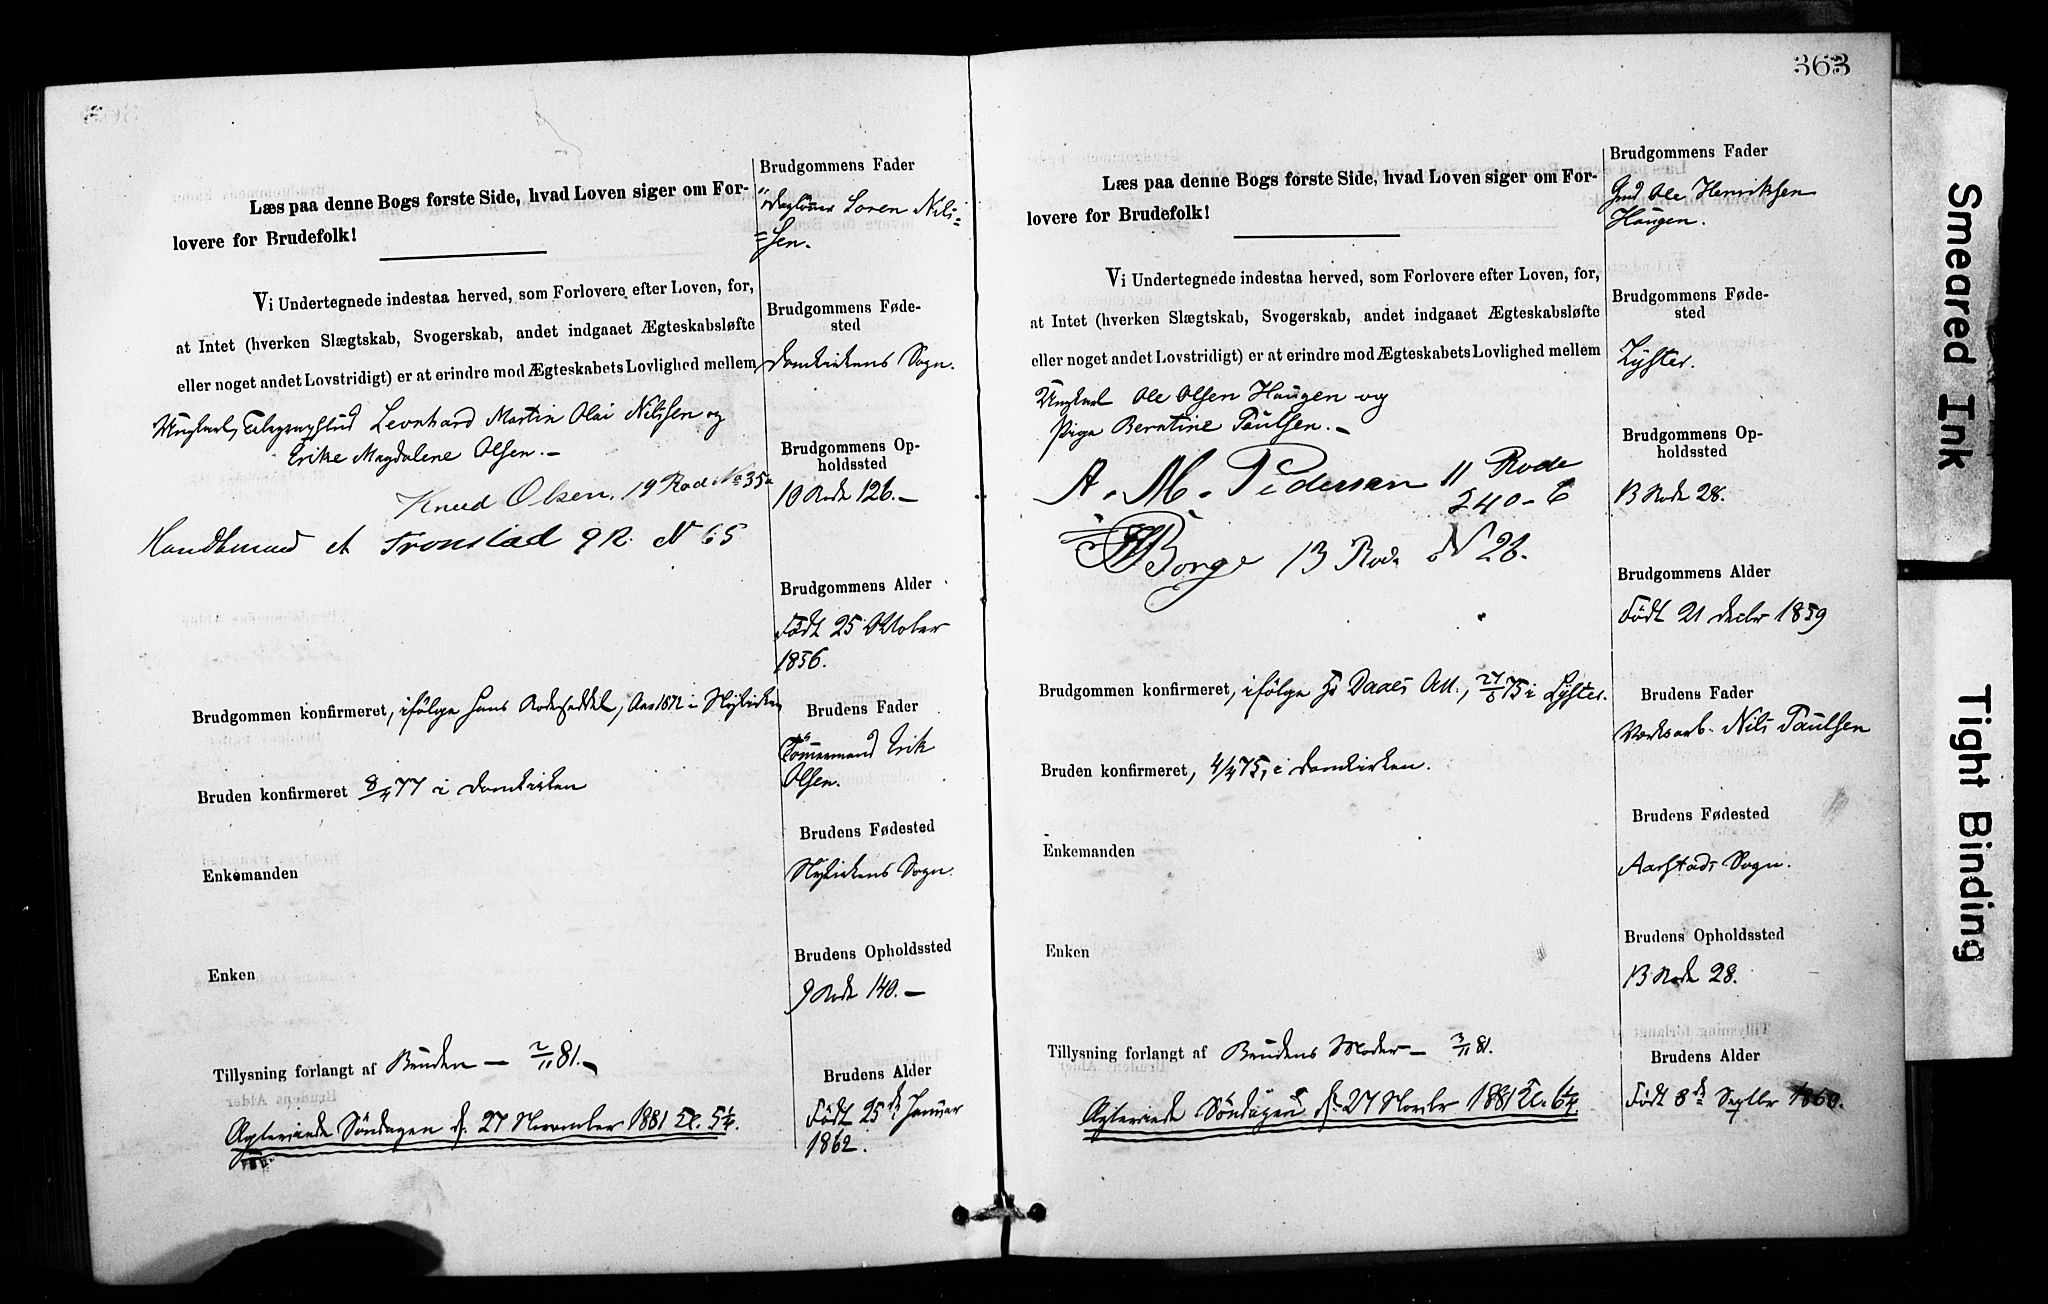 Læs paa denne Bogs første Side, hvad Loven siger om For-
lovere for Brudefolk!
Vi Undertegnede indestaa herved, som Forlovere efter Loven, for,
at Intet (hverken Slægtskab, Svogerskab, andet indgaaet Ægteskabsløfte
eller noget andet Lovstridigt) er at erindre mod Ægteskabets Lovlighed mellem
Ungkarl, Leonhard Martin Olai Nilssen og
Erike Magdalene Olsen. –
Knud Olsen. 19 Rode No 35a
Tronstad 9 R. N 65
Brudgommen konfirmeret, ifølge hans Rodeseddel, Aar 1872 i Nykirken
Bruden konfirmeret 8/4 77 i Domkirken
Enkemanden
Enken
Tillysning forlangt af Bruden – 2/11 81. –
Agteviede Søndagen d. 27 November 1881 Kl. 5¼.
Brudgommens Fader
Dagløner Soren Nils-
=sen.
Brudgommens Føde-
sted
Domkirkens Sogn.
Brudgommens Op-
holdssted
10 Rode 126. –
Brudgommens Alder
Født 25 Oktober
1856.
Brudens Fader
Tømmermand Erik
Olsen.
Brudens Fødested
Nykirkens Sogn.
Brudens Opholdssted
9 Rode 140. –
Brudens Alder
Født 25de Januar
1862.
363
Læs paa denne Bogs første Side, hvad Loven siger om For-
lovere for Brudefolk!
Vi Undertegnede indestaa herved, som Forlovere efter Loven, for,
at Intet (hverken Slægtskab, Svogerskab, andet indgaaet Ægteskabsløfte
eller noget andet Lovstridigt) er at erindre mod Ægteskabets Lovlighed mellem
Ungkarl Ole Olsen Haugen og
Pige Berntine Paulsen. –
A. M. Pedersen 11 Rode
240 – 6
Borge 13 Rode N 26.
Brudgommen konfirmeret, ifølge Daaes Att., 27/6 75 i Lyster.
Bruden konfirmeret, 4/4 75, i Domkirken.
Enkemanden
Enken
Tillysning forlangt af Brudens Moder – 3/11 81.
Agteviede Søndagen d. 27 Novbr 1881 Kl. 6¼
Brudgommens Fader
Gmd Ole Henriksen
Haugen.
Brudgommens Føde-
sted
Lyster.
Brudgommens Op-
holdssted
13 Rode 28.
Brudgommens Alder
Født 21 Decbr 1859
Brudens Fader
Værksarb. Nils Paulsen
Brudens Fødested
Aarstads Sogn.
Brudens Opholdssted
13 Rode 28.
Brudens Alder
Født 8de Septbr 1860.
Smeared Ink
Tight Binding